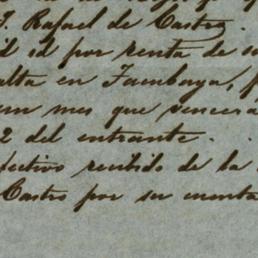 S. Rafael de Castro.
id id por renta de su
alta en Jambaya, f
em mes que vencerá
2 del entrante.
fectivo recibido de la
Castro por su cuenta